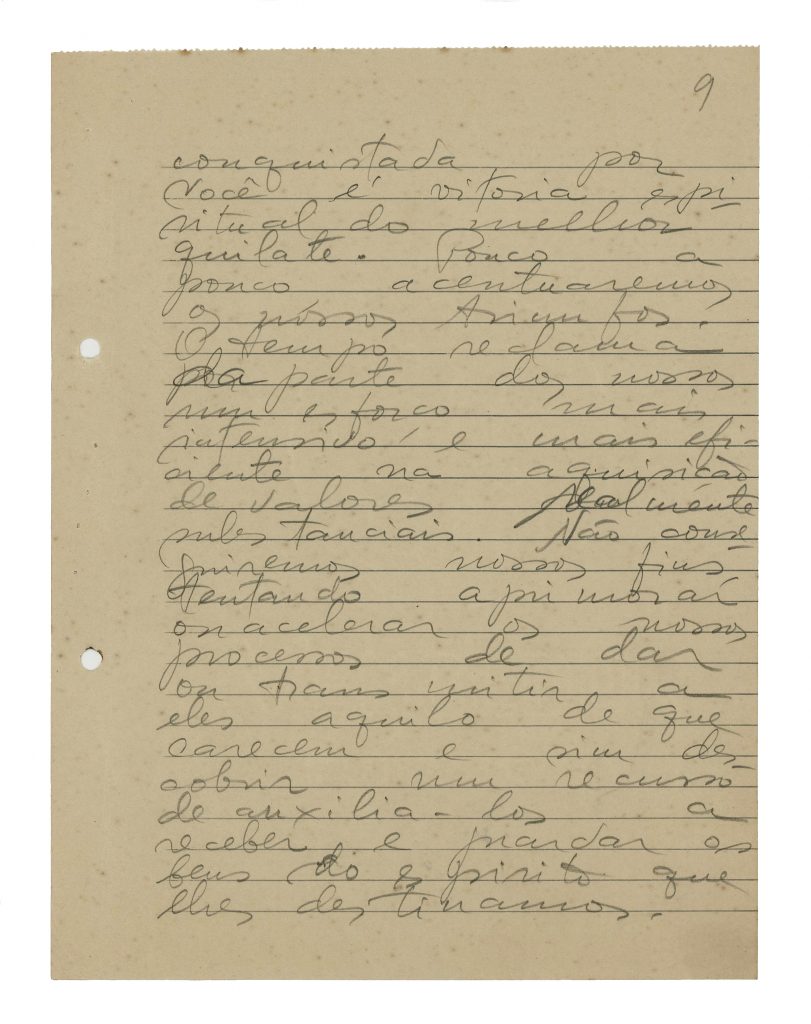 9
conquistada por
você é vitoria espi-
ritual do melhor
quilate. Pouco a
pouco acentuaremos
os nóssos triunfos.
O tempo reclama
da parte dos nossos
um esforço mais
intensivo e mais efi-
ciente na aquisição
de valores realmente
substanciais. Não conse-
guiremos nossos fins
tentando aprimorar
ou acelerar os nossos
processos de dar
ou transmitir a
eles aquilo de que
carecem e sim des-
cobrir um recurso
de auxilia-los a
receber e guardar os
bens do espirito que
lhes destinamos.